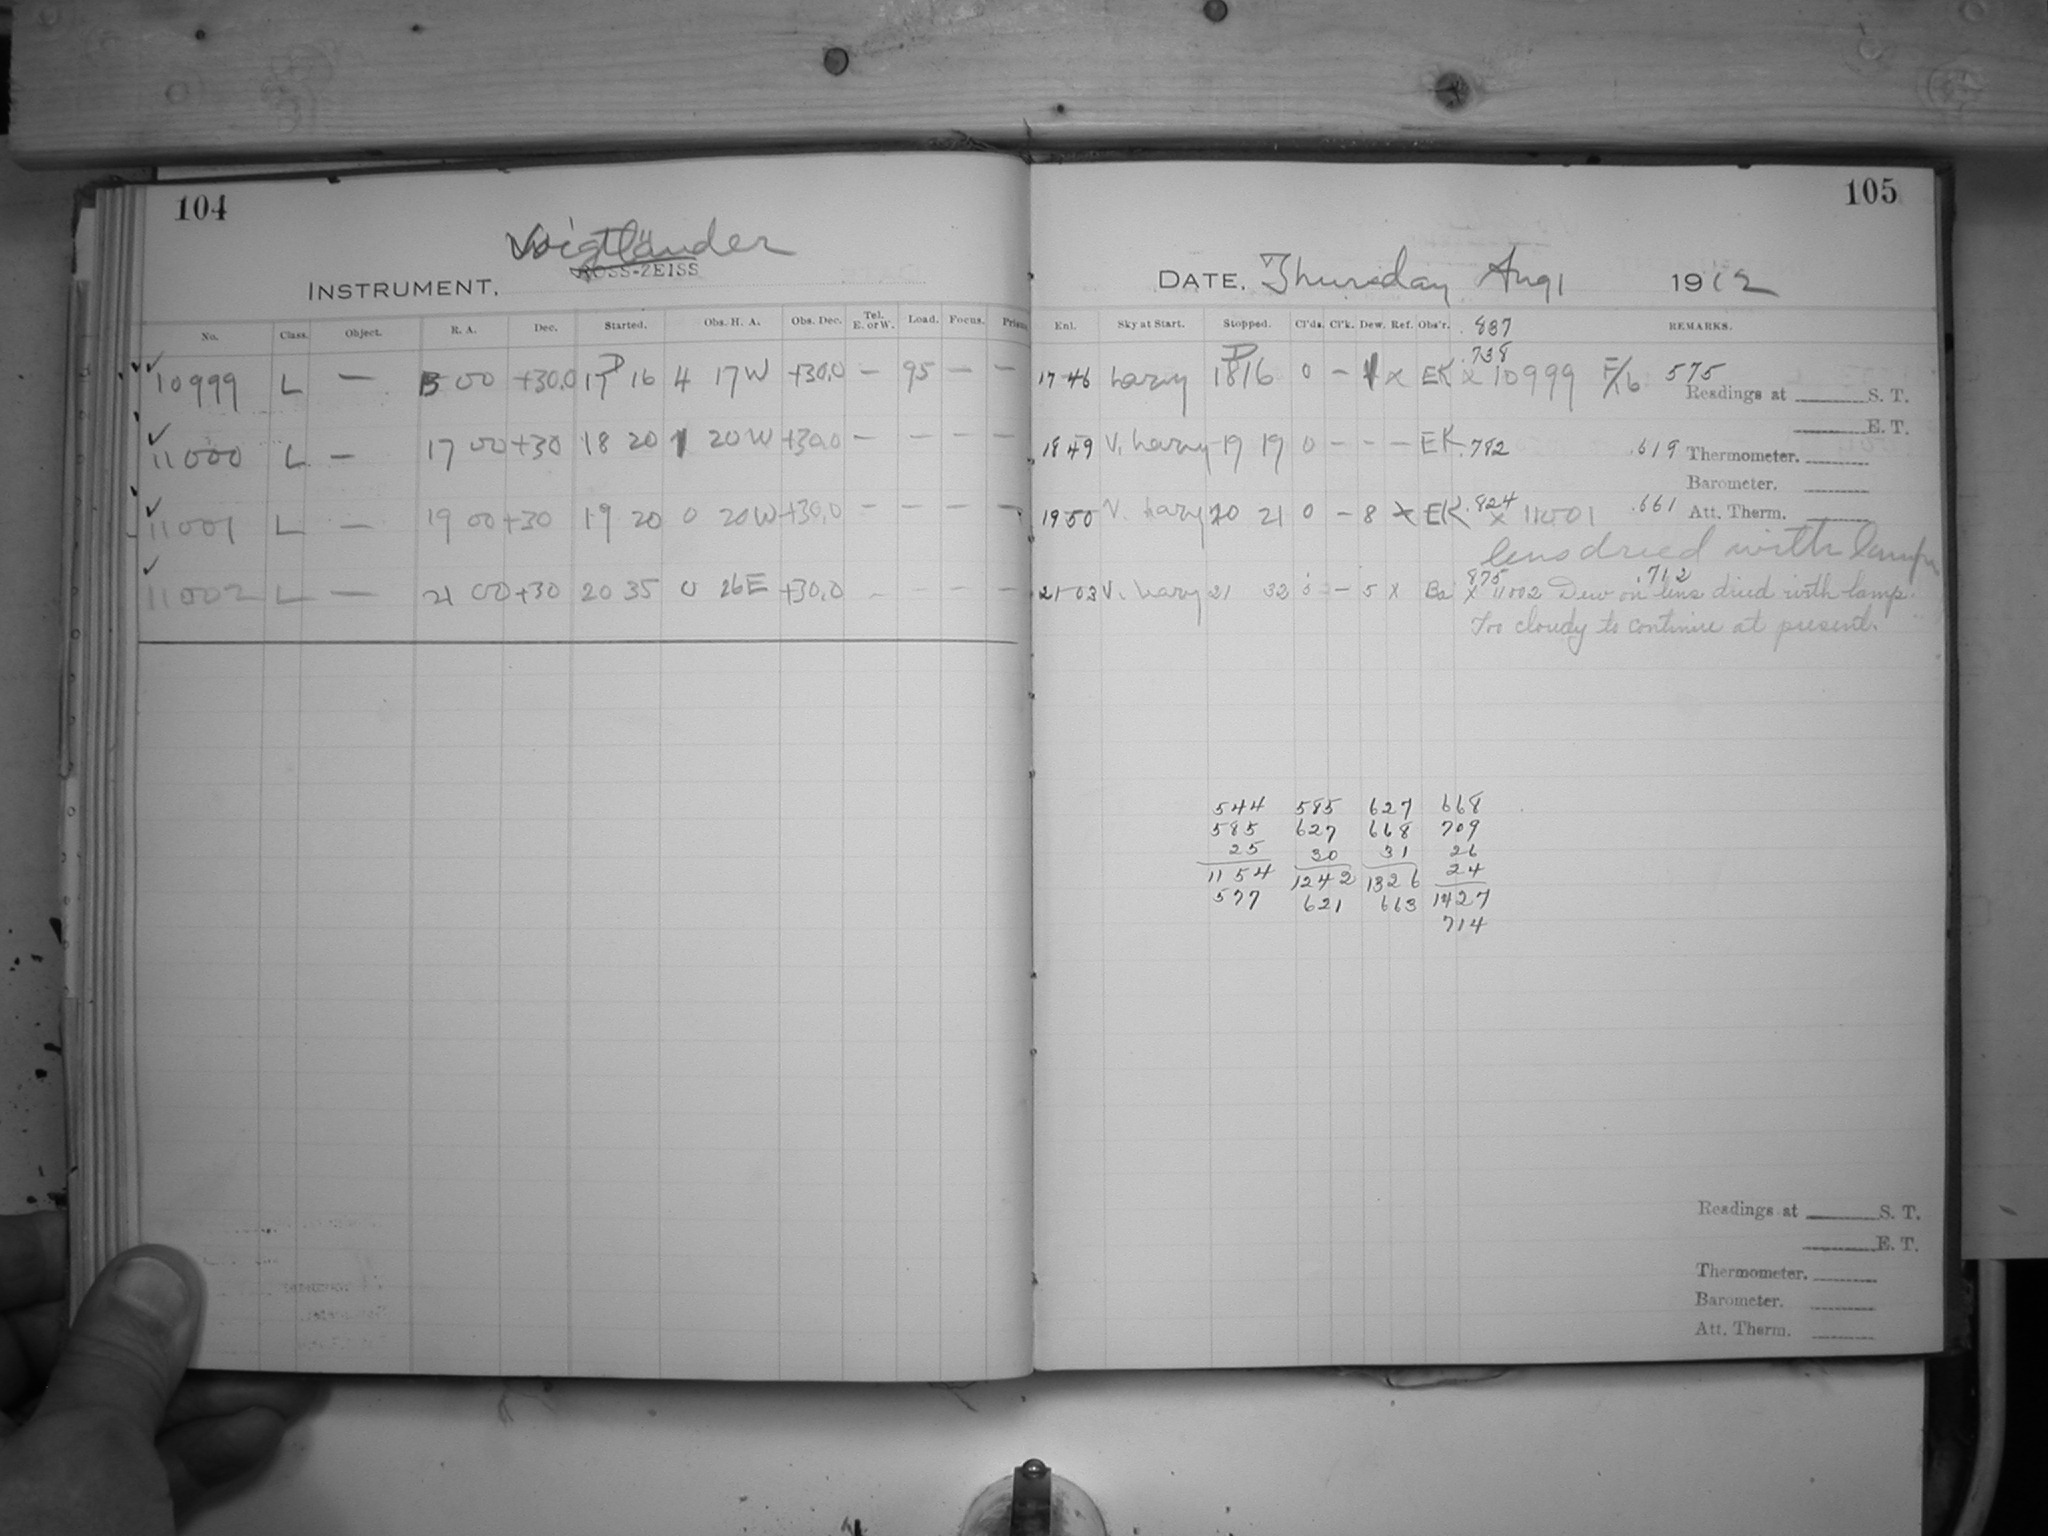 104
Voigtländer
ROSS-ZEISS
INSTRUMENT.
No. Class. Object. R. A. Dec. Started. Obs. H. A. Obs. Dec. Tel. E. or W. Load. Focus. Prism
10999 L — 13 00 +30,0 17 16 4 17W +30,0 — 95 — —
11000 L — 17 00 +30 18 20 1 20W +30,0 — — — —
11001 L — 19 00 +30 19 20 0 20W +30,0 — — — —
11002 L — 21 00 +30 20 35 0 26E +30,0 - - - -
105
DATE. Thursday Aug 1 1912
Enl. Sky at Start. Stopped. Cl'ds. Cl'k. Dew. Ref. Obs'r. .887 REMARKS.
.738
17 46 hazy 18 16 0 — 1 x EK x 10999 F/6 575
Readings at S. T.
E. T.
18 49 V. hazy 19 19 0 - - — EK .782 .619 Thermometer.
Barometer.
19 50 V. hazy 20 21 0 - 8 x EK .824 x 11001 .661 Att. Therm.
lens dried with lamp
.875 .712
21 03 V. hazy 21 32 0 - 5 x Ba x 11002 Dew on lens dried with lamp.
Too cloudy to continue at present.
544 585 627 668
585 627 668 709
25 30 31 26
1154 1242 1326 24
577 621 663 1427
714
Readings at S. T.
E. T.
Thermometer.
Barometer.
Att. Therm.